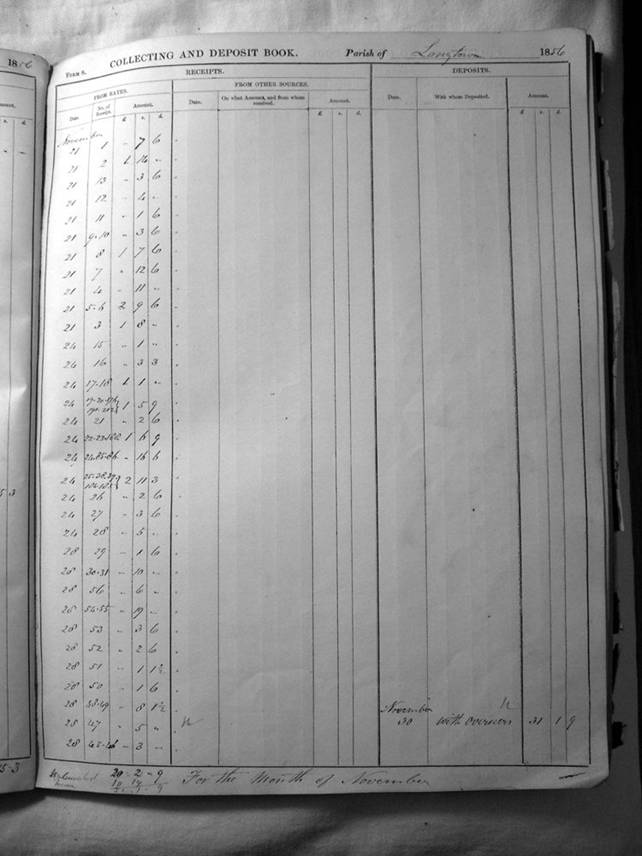 1856
FORM 8. COLLECTING AND DEPOSIT BOOK. Parish of Longtown 1856
RECEIPTS. DEPOSITS.
FROM RATES. FROM OTHER SOURCES.
Date No. of Receipt. Amount. Date. On what Account, and from whom received. Amount. Date. With whom Deposited. Amount.
£ s. d. £ s. d. £ s. d.
November
21 1 " 7 6
21 2 1 14 "
21 13 " 3 6
21 12 " 4 "
21 11 " 1 6
21 9-10 " 3 6
21 8 1 7 6
21 7 " 12 6
21 4 " 11 "
21 5-6 2 9 6
21 3 1 8 "
24 15 " 1 "
24 16 " 3 3
24 17-18 1 1 "
24 1 5 9
24 21 " 2 6
24 1 6 9
24
24 2 11 3
24 26 " 2 6
24 27 " 3 6
24 28 " 5 "
28 29 " 1 6
28 30-31 " 10 "
28 56 " 6 "
28 54-55 " 19 "
28 53 " 3 6
28 52 " 2 6
28 51 " 1 1½
28 50 " 1 6
28 " 8 1½ November
28 47 " 5 " 30 with overseers 31 1 9
28 45-46 " 3 "
20 - 2 - 9 For the Month of November